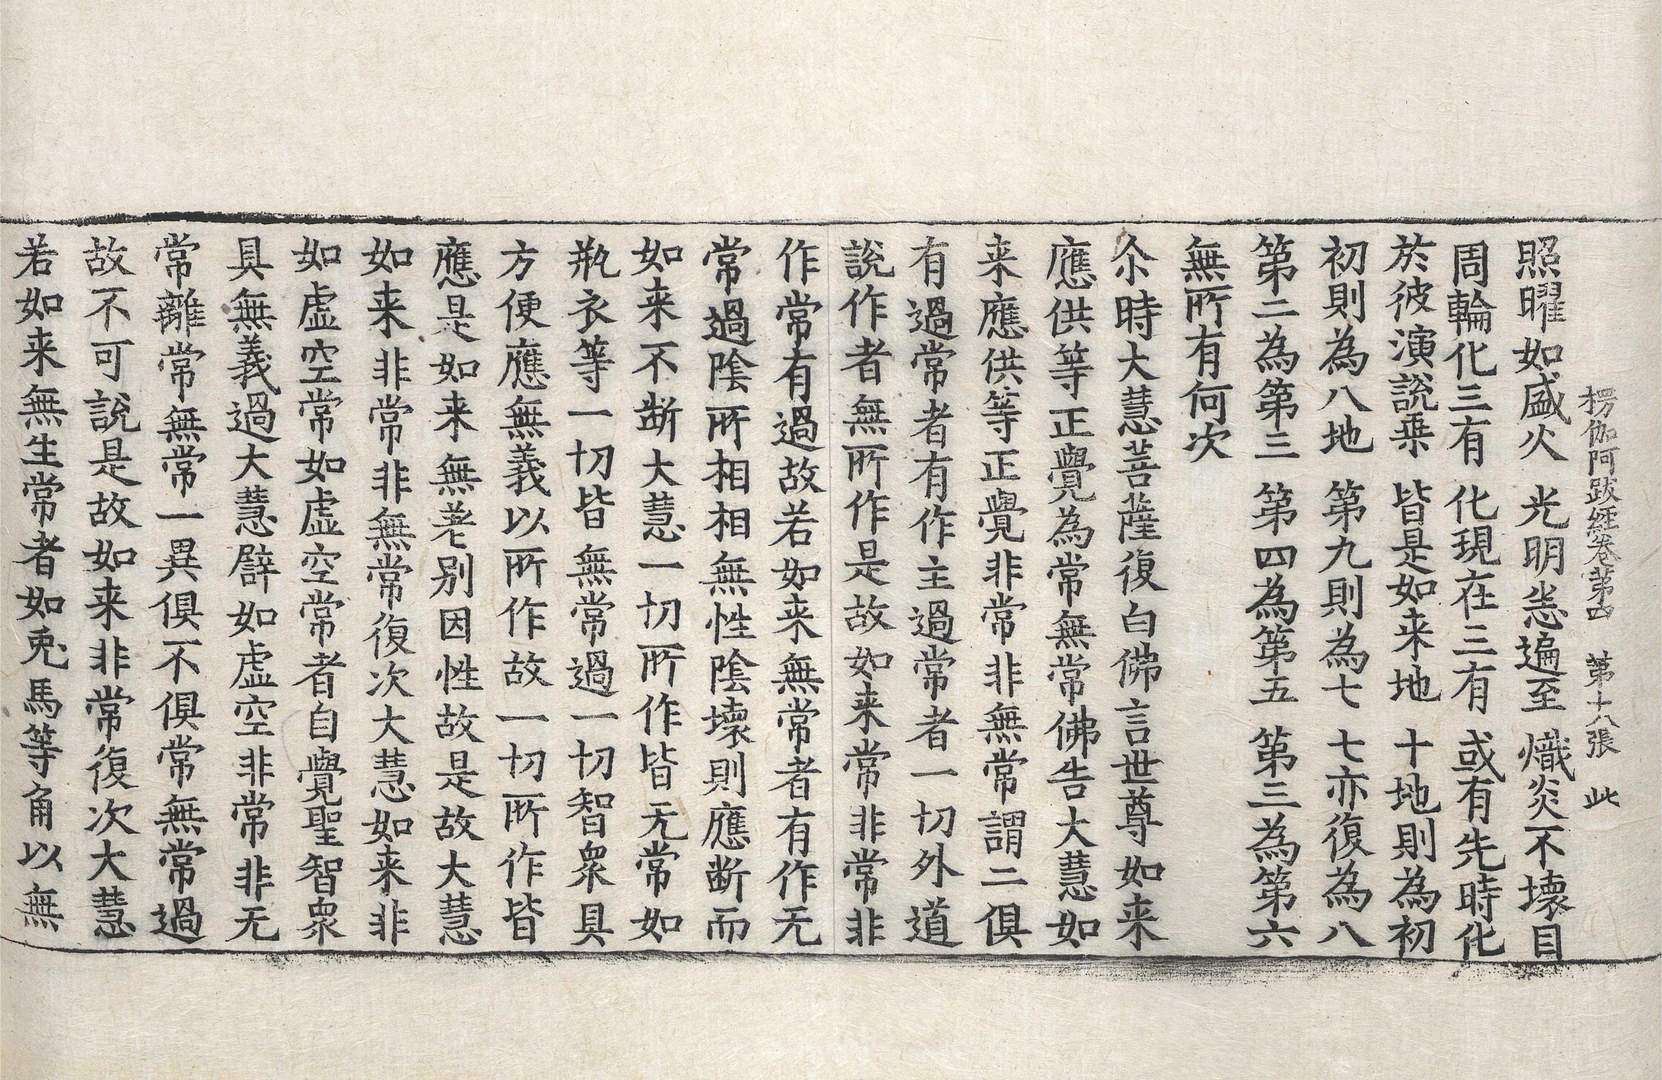 楞伽阿跋經卷第四 第十八張 此
照曜如盛火 光明悉遍至 熾炎不壞目
周輪化三有 化現在三有 或有先時化
於彼演說乗 皆是如来地 十地則為初
初則為八地 第九則為七 七亦復為八
第二為第三 第四為第五 第三為第六
無所有何次
尒時大慧菩薩復白佛言世尊如来
應供等正覺為常無常佛告大慧如
来應供等正覺非常非無常謂二俱
有過常者有作主過常者一切外道
說作者無所作是故如来常非常非
作常有過故若如来無常者有作无
常過陰所相相無性陰壞則應断而
如来不断大慧一切所作皆无常如
瓶衣等一切皆無常過一切智衆具
方便應無義以所作故一切所作皆
應是如来無差别因性故是故大慧
如来非常非無常復次大慧如来非
如虛空常如虛空常者自覺聖智衆
具無義過大慧譬如虛空非常非无
常離常無常一異俱不俱常無常過
故不可說是故如来非常復次大慧
若如来無生常者如兎馬等角以無